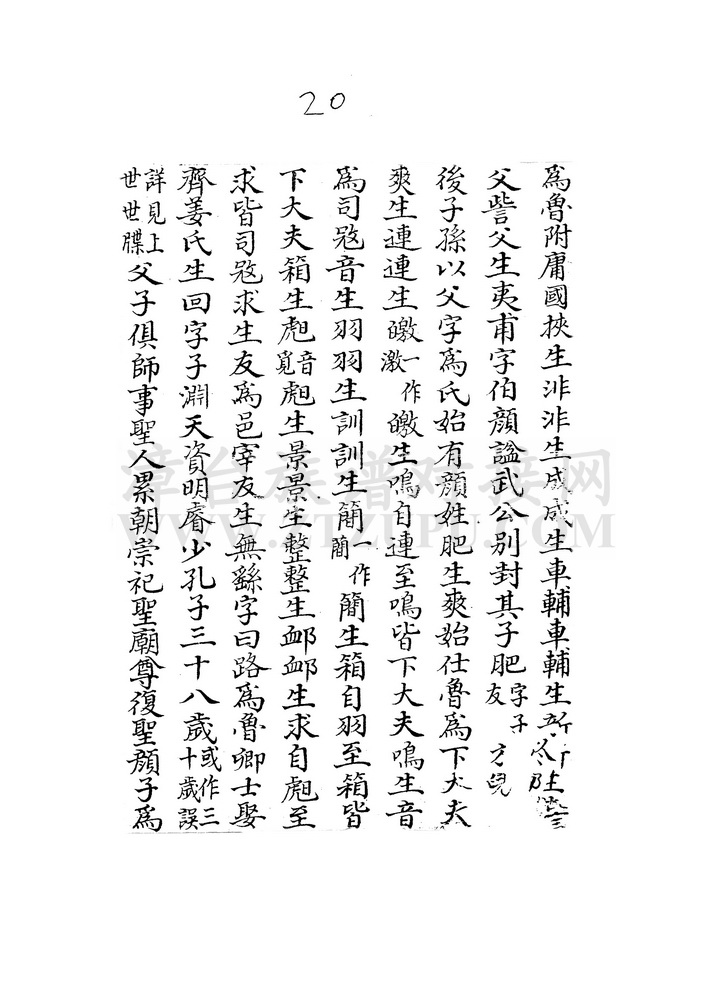 20
為魯附庸國挾生沘沘生成成生車輔車輔生
父訾父生夷甫字伯顏諡武公別封其子肥字子友
後子孫以父字為氏始有顏姓肥生爽始仕魯為下大夫
爽生連連生皦一作激皦生鳴自連至鳴皆下大夫鳴生音
為司寇音生羽羽生訓訓生簡一作簡簡生箱自羽至箱皆
下大夫箱生彪音覓彪生景景生整整生衈衈生求自彪至
求皆司寇求生友為邑宰友生無繇字曰路為魯卿士娶
齊姜氏生回字子淵天資明睿少孔子三十八歲或作三十歲誤
詳見上世世牒父子俱師事聖人累朝崇祀聖廟尊復聖顏子為
漳台族譜對接網
WWW.ZTZUPU.COM